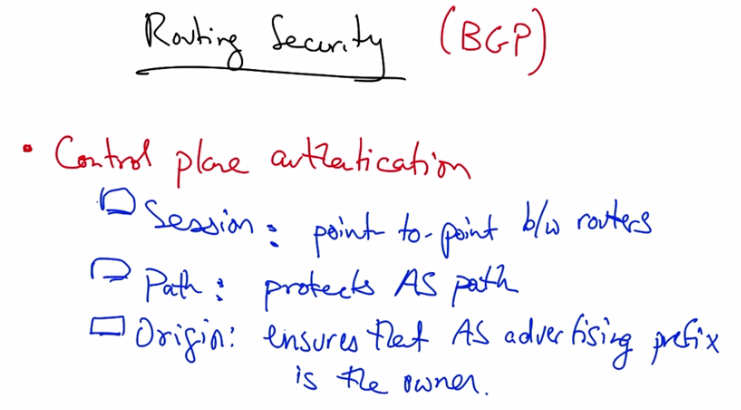 Routing Security (BGP)
• Control plane authentication
Session: point-to-point b/w routers
Path: protects AS path
Origin: ensures that AS advertising prefix
is the owner.